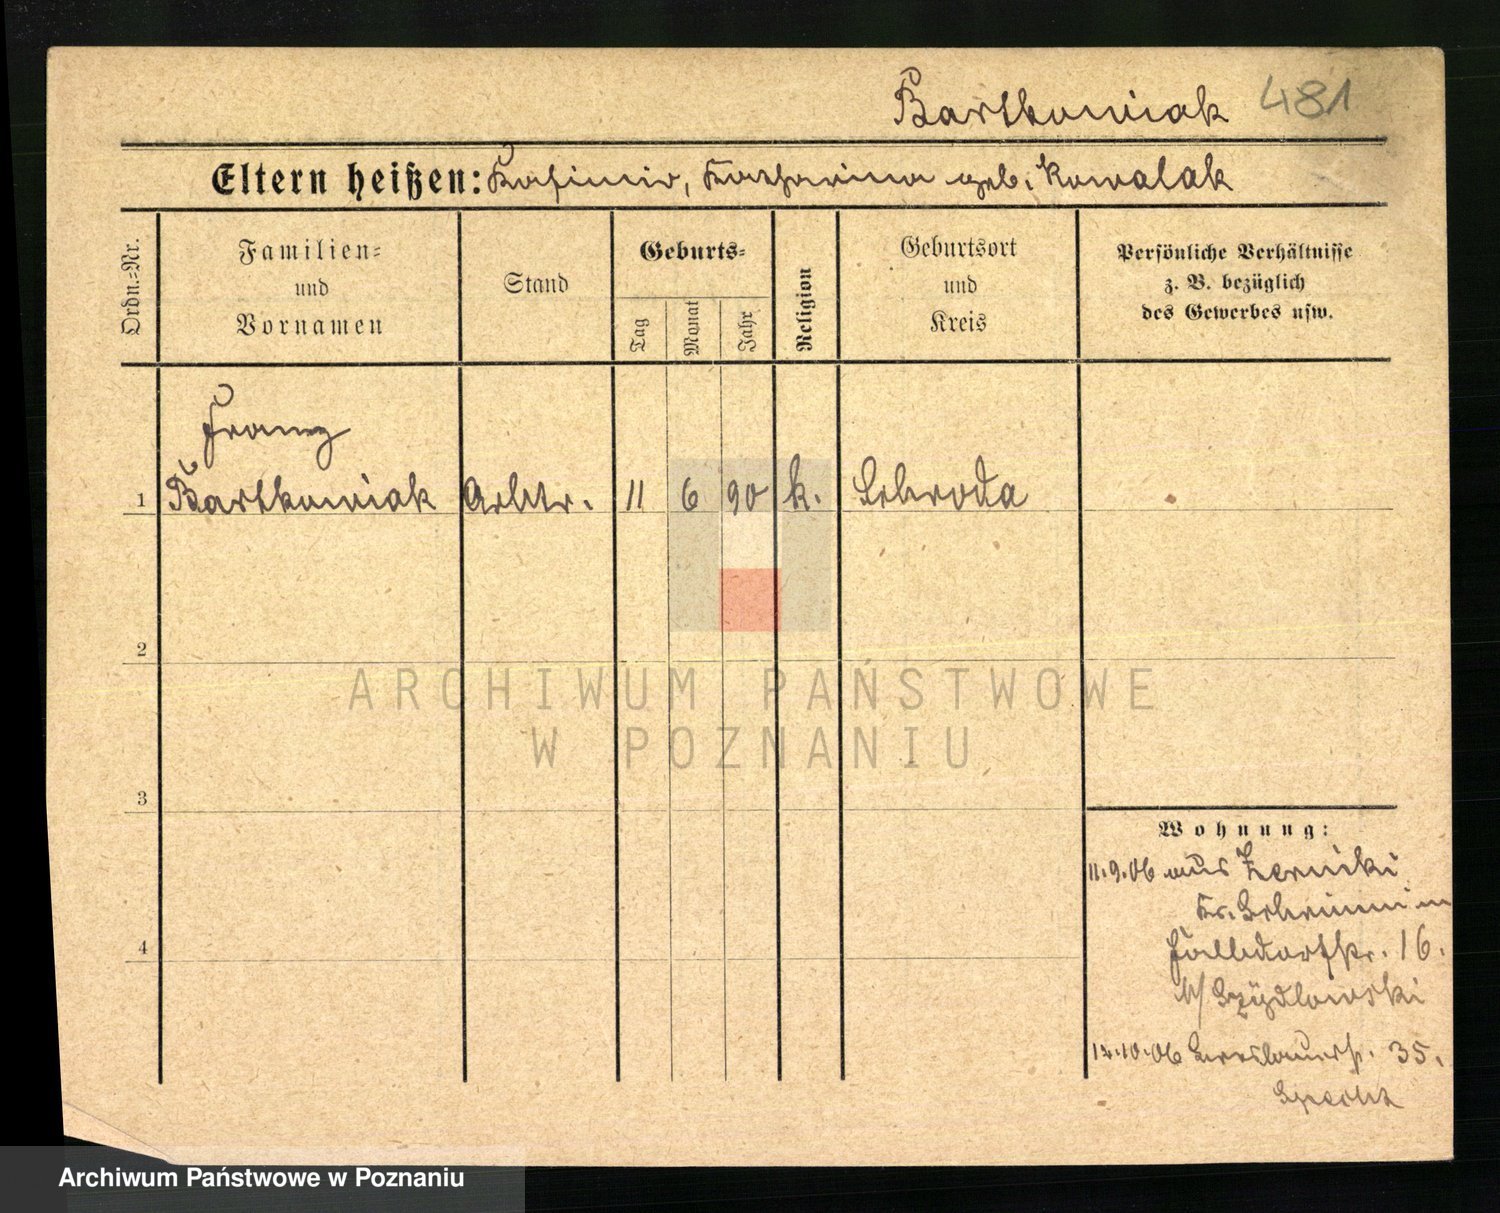 Bartkowiak 481
Eltern heißen: Kasimir, Katharina geb. Kowalak
Ordn.=Nr.
Familien=
und
Vornamen
Stand
Geburts=
Tag
Monat
Jahr
Religion
Geburtsort
und
Kreis
Persönliche Verhältnisse
z. B. bezüglich
des Gewerbes usw.
Franz
1 Bartkowiak Arbtr. 11 6 90 k. Schroda
2
ARCHIWUM PAŃSTWOWE
W POZNANIU
3
Wohnung:
11.9.06 aus Zerniki
Kr. Schrimm in
16.
4
b/ Szydlowski
10.06 35.
Specht
Archiwum Państwowe w Poznaniu